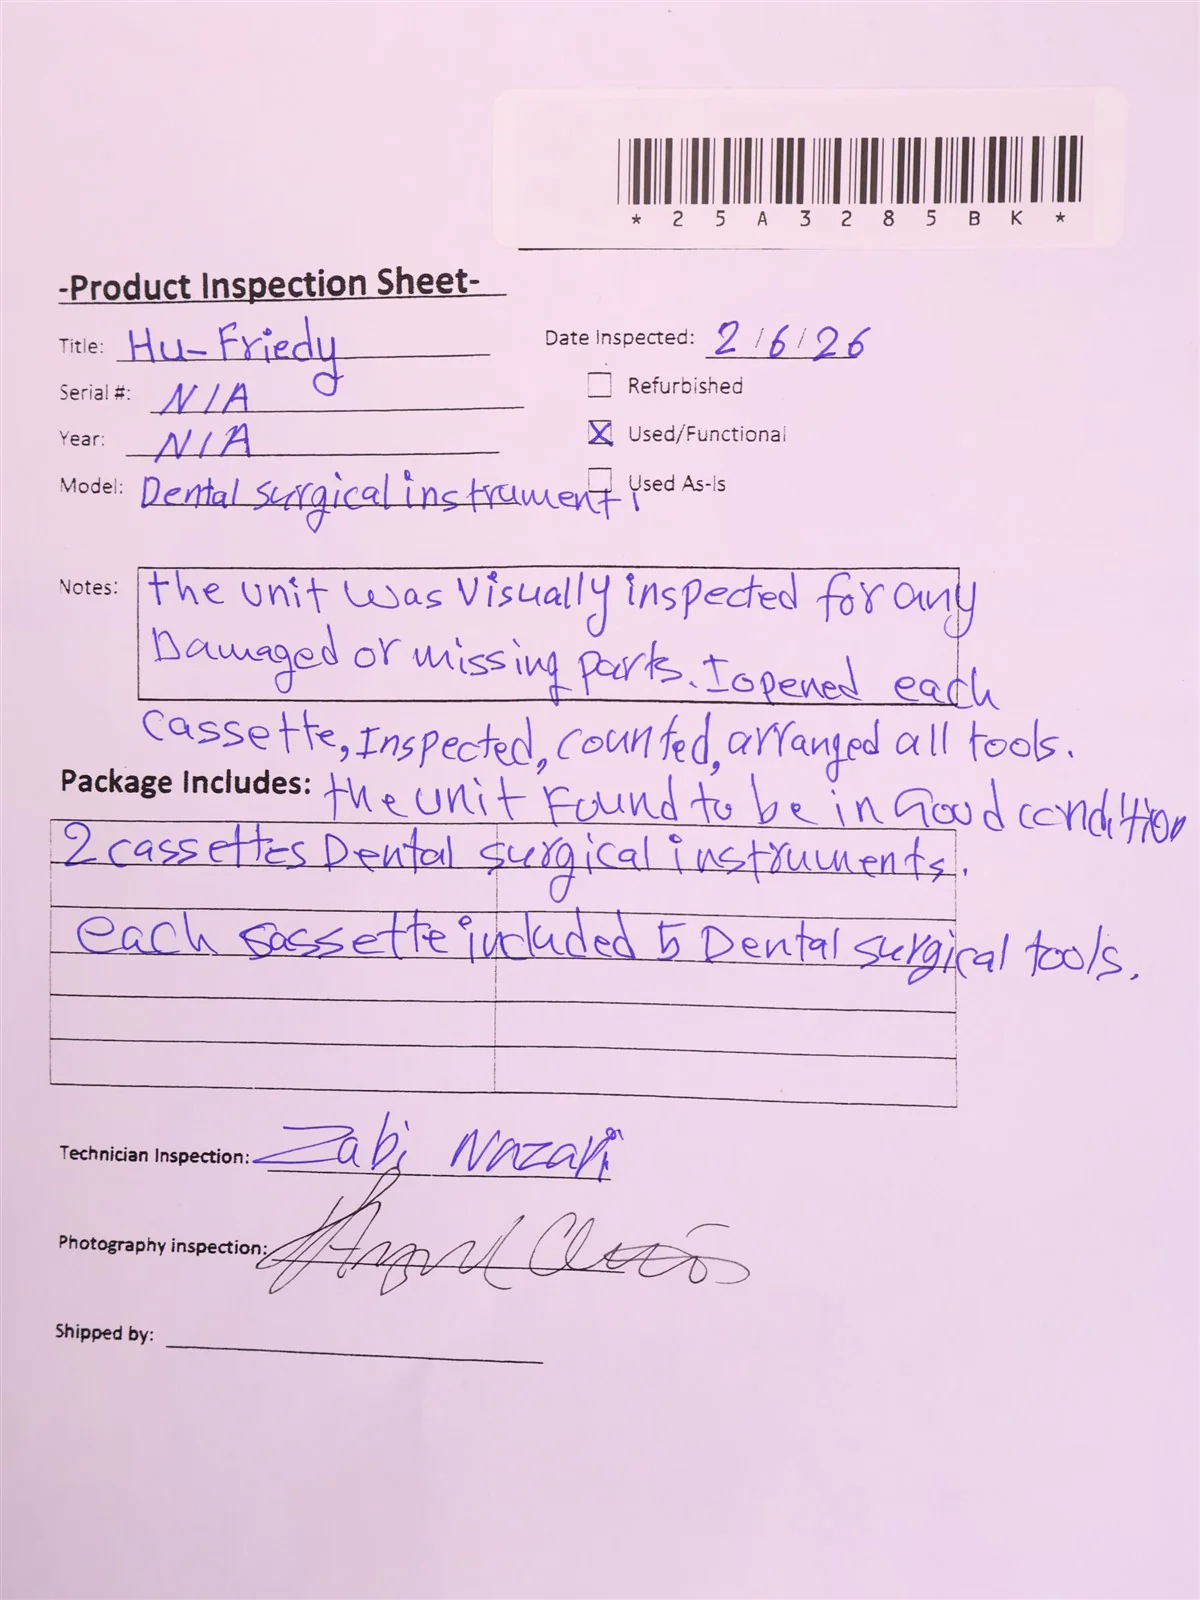 *25A3285BK*
-Product Inspection Sheet-
Title: Hu-Friedy
Date Inspected: 2/6/26
Serial #: N/A
Refurbished
Year: N/A
X Used/Functional
Model: Dental surgical instrument
Used As-Is
Notes: the unit was Visually inspected for any
Damaged or missing parts. I opened each
cassette, Inspected, counted, arranged all tools.
Package Includes: the unit Found to be in Good condition
2 cassettes Dental surgical instruments.
each sassette included 5 Dental surgical tools.
Technician Inspection: Zabi Nazari
Photography inspection:
Shipped by: